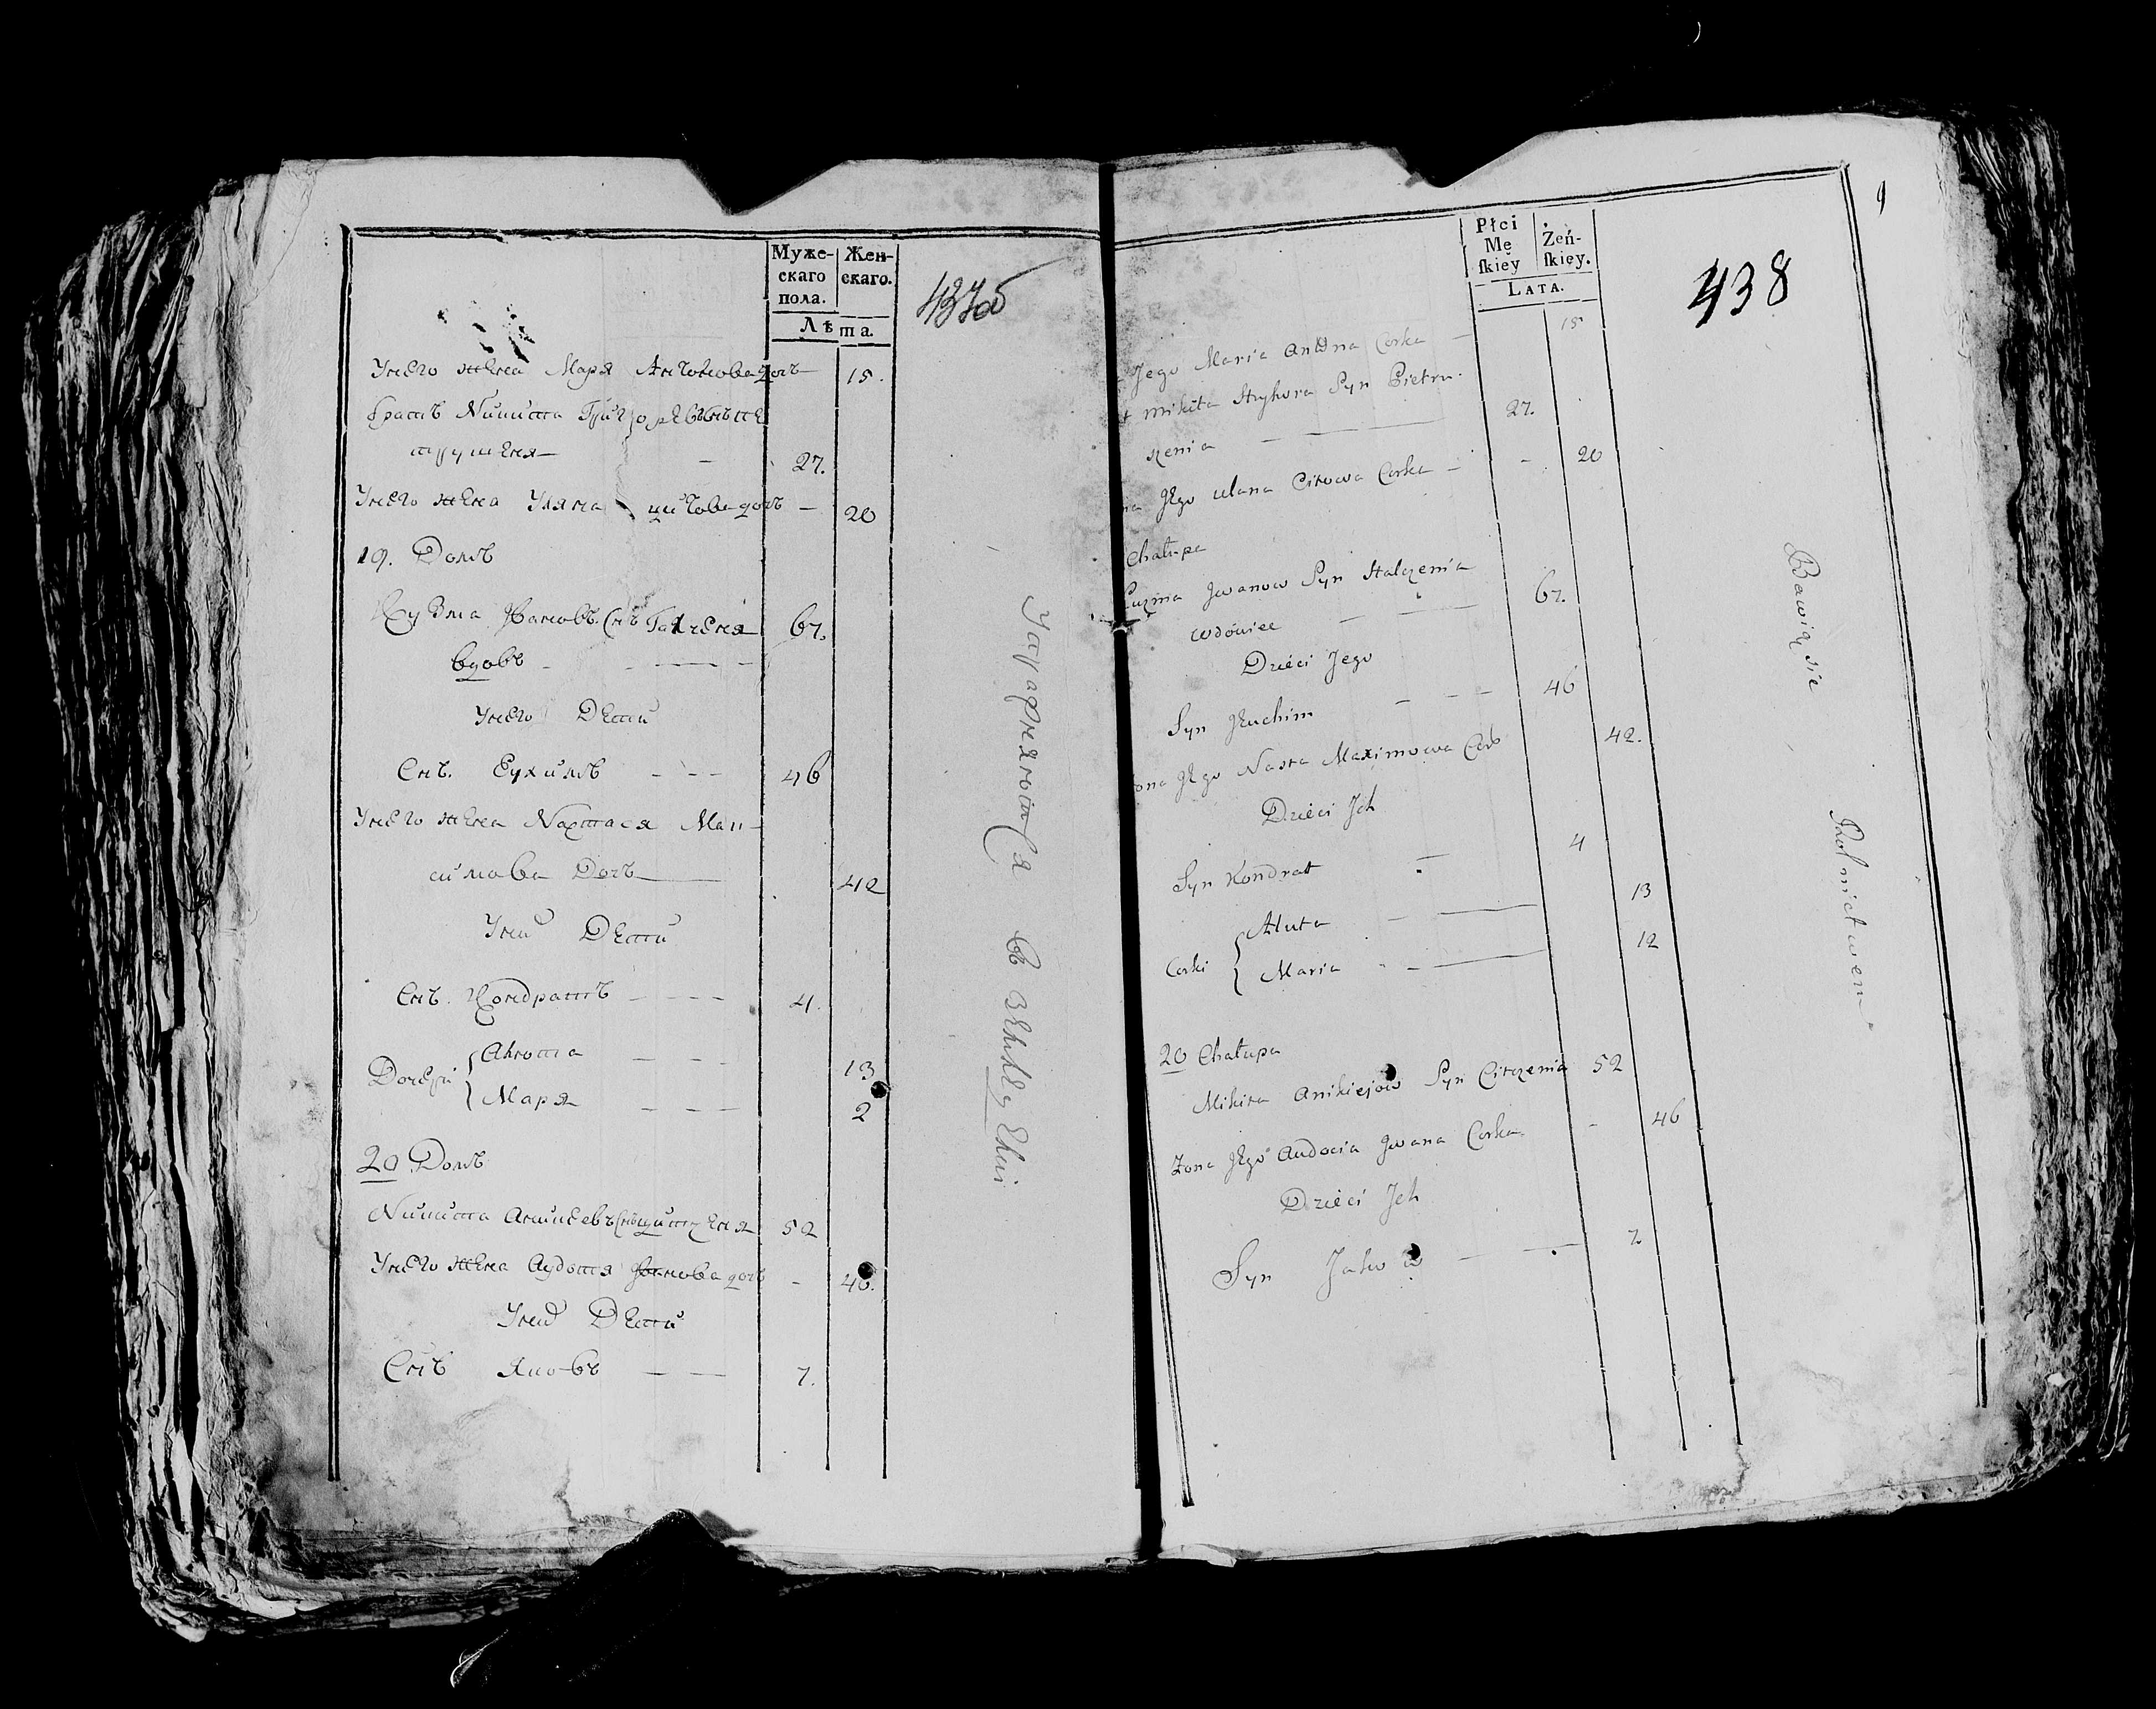 Муже-
скаго
пола.
Жен-
скаго.
Лѣта.
437об
Унего жена Маря Антонова дочь 15.
братъ Никита Григоревъ Снъ пе
трушеня — 27.
Унего жена Уляна цитова дочь — 20
19. Домъ
Кузма Ивановъ Снъ Галченя 67.
вдовъ
Унего Дети
Снъ. Еухимъ 46
Унего жена Настася Мак-
симова Дочь 42
Уних Дети
Снъ. Кондратъ 4.
Дочери Анюта 13
Маря 2
20 Домъ
Никита Аникеевъ Снъ цитченя 52
Унего жена Аудотя Иванова дочь - 46.
Уних Дети
Снъ Яковъ 7.
Упражняютса В земледелии
9
Płci
Mę
ſkiey
Żeń-
ſkiey.
LATA.
438
Jego Maria Antona Corka — 15
Mikita Hryhora Syn Pietru-
szenia 27.
na Jego Ulana Citowa Corka — 20
Chałupa
Kuzma Jwanow Syn Halczenia 67.
wdowiec
Dzieci Jego
Syn Jeuchim 46
ona Jego Nasta Maximowa Cor 42.
Dzieci Jch
Syn Kondrat 4
Corki Aluta 13
Maria 12
20 Chałupa
Mikita Anikiejow Syn Citczenia 52
Żona Jego Audocia Jwana Corka - 46
Dzieci Jch
Syn Jakow 7
Bawią się Rolnictwem